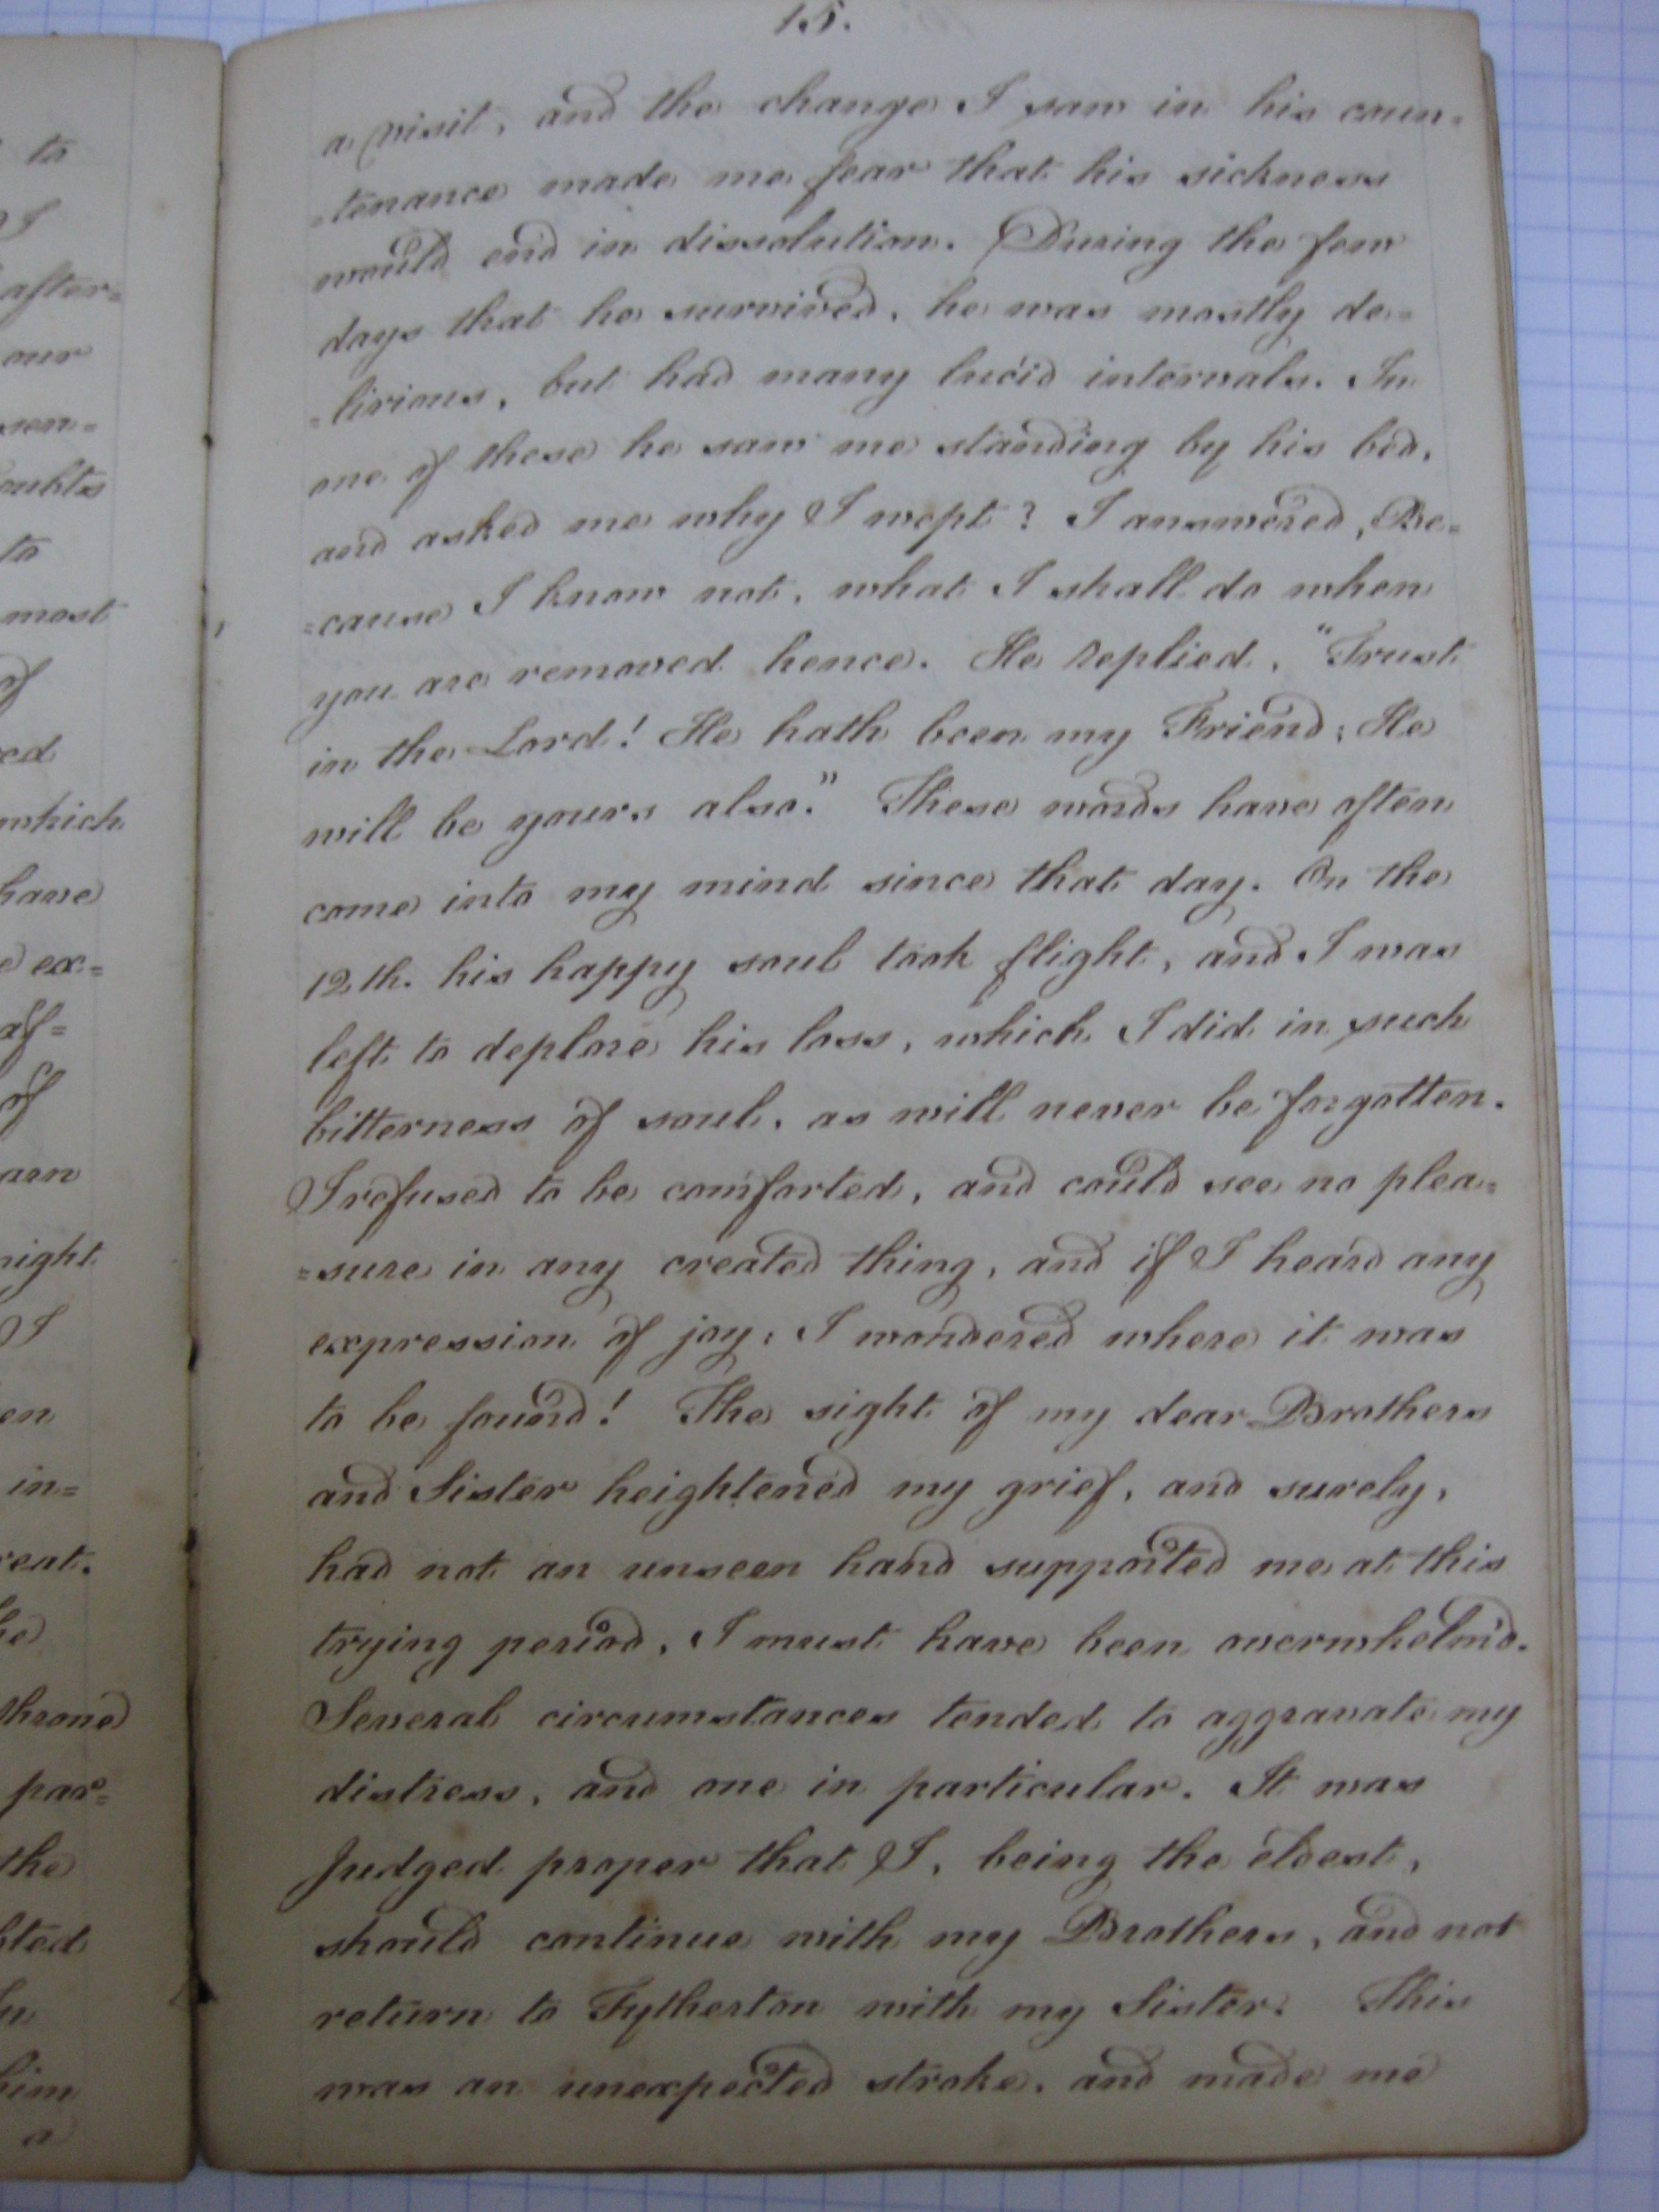 15.
a visit, and the change I saw in his coun=
=tenance made me fear that his sickness
would end in dissolution. During the few
days that he survived, he was mostly de=
=lirious, but had many lucid intervals. In
one of these he saw me standing by his bed,
and asked me why I wept? I answered, Be=
=cause I know not, what I shall do when
you are removed hence. He replied, "Trust
in the Lord! He hath been my Friend; He
will be yours also." These words have often
come into my mind since that day. On the
12th. his happy soul took flight, and I was
left to deplore his loss, which I did in such
bitterness of soul, as will never be forgotten.
I refused to be comforted, and could see no plea=
=sure in any created thing, and if I heard any
expression of joy; I wondered where it was
to be found! The sight of my dear Brothers
and Sister heightened my grief, and surely,
had not an unseen hand supported me at this
trying period, I must have been overwhelm'd.
Several circumstances tended to aggravate my
distress, and one in particular. It was
Judged proper that I, being the eldest,
should continue with my Brothers, and not
return to Tytherton with my Sister. This
was an unexpected stroke, and made me
to
I
after=
our
sen=
oubts
to
most
of
ed
which
have
ex=
af=
of
arn
night
I
en
in=
reat.
he
throne
par=
the
bted
him
a